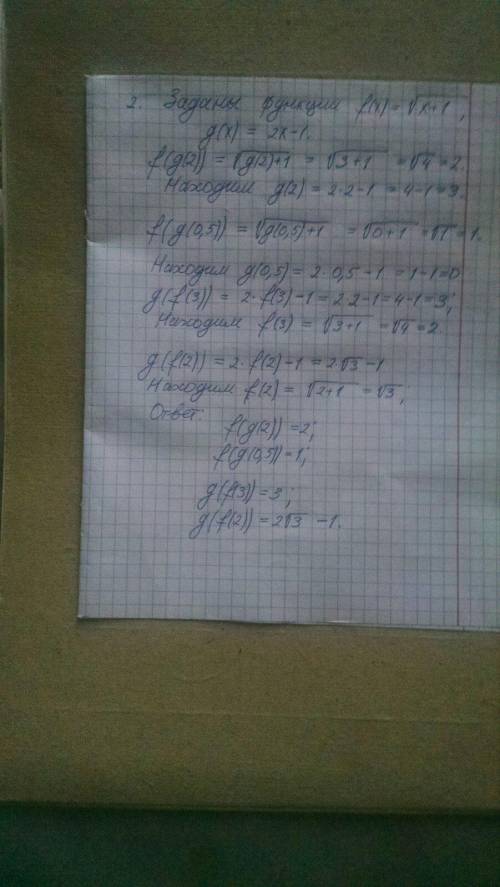 2. Заданы функции f(x) = √x+1,
g(x) = 2x-1.
f(g(2)) = √g(2)+1 = √3+1 = √4 = 2.
Находим g(2) = 2·2-1 = 4-1 = 3.
f(g(0,5)) = √g(0,5)+1 = √0+1 = √1 = 1.
Находим g(0,5) = 2·0,5-1 = 1-1=0
g(f(3)) = 2·f(3)-1 = 2·2-1=4-1=3;
Находим f(3) = √3+1 = √4 = 2.
g(f(2)) = 2·f(2)-1 = 2√3-1
Находим f(2) = √2+1 = √3;
Ответ:
f(g(2)) = 2;
f(g(0,5)) = 1;
g(f(3)) = 3;
g(f(2)) = 2√3 - 1.